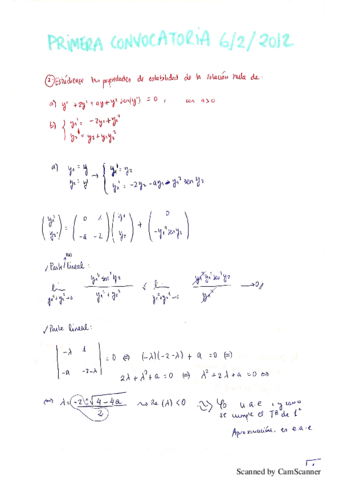 PRIMERA CONVOCATORIA 6/2/2012
② Estúdiense las propiedades de estabilidad de la solución nula de
a) y'' + 2y' + ay + y² sen(y') = 0, con a>0
b) { y₁' = -2y₁ + y₂³
y₂' = y₂ + y₁y₂²
a) y₁ = y
y₂ = y' → { y₁' = y₂
y₂' = -2y₂ - ay₁ - y₁² sen y₂
(y₁' y₂') = (0 1 -a -2)(y₁ y₂) + (0 -y₁² sen y₂)
✓ Parte no lineal:
✓ Parte lineal:
| -λ 1 -a -2-λ | = 0 ⇔ (-λ)(-2-λ) + a = 0 ⇔
2λ + λ² + a = 0 ⇔ λ² + 2λ + a = 0 ⇔
⇔ λ = -2 ± √4-4a / 2 → Re(λ) < 0
u.a.e. y como
se cumple el Tª de 1ª
Aproximación. es e.a.e
Scanned by CamScanner